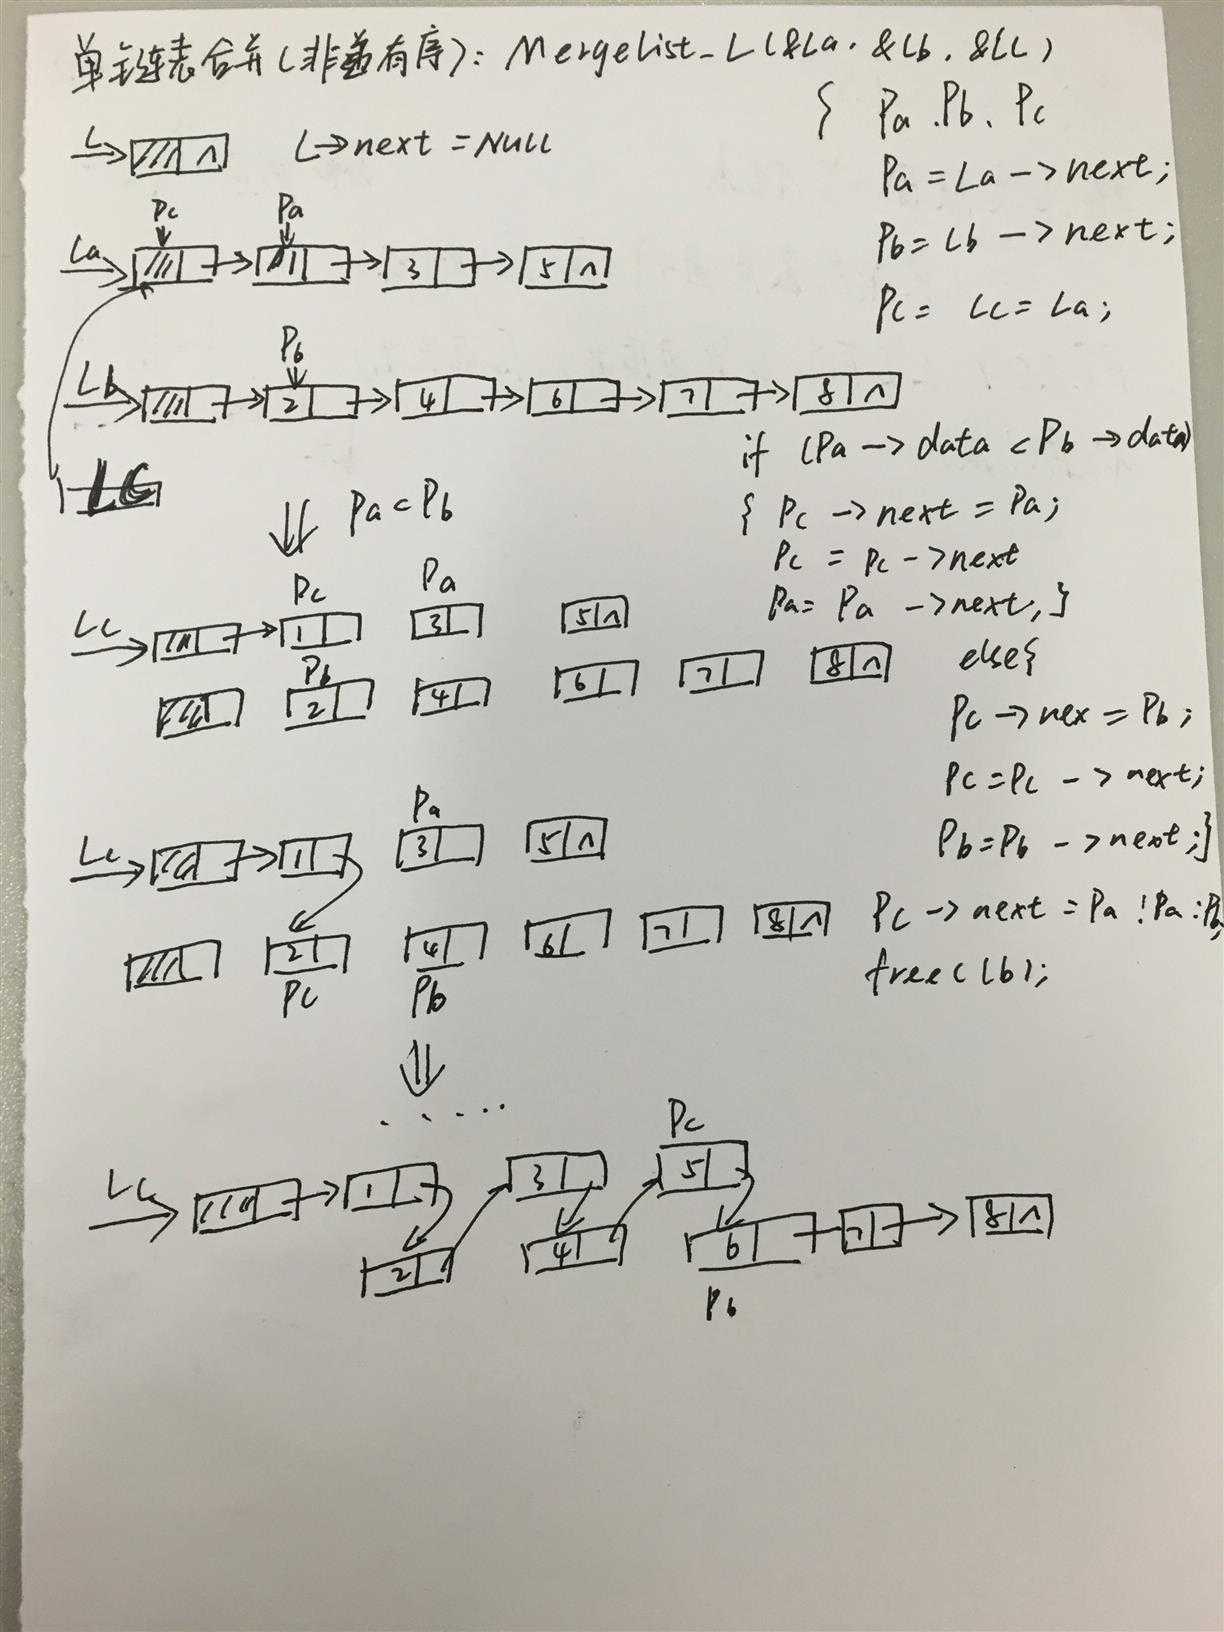 单链表合并(非递有序): MergeList_L(&La, &Lb, &Lc)
{ Pa, Pb, Pc
L → ∧ L→next = NULL
Pa = La -> next;
Pc Pa
La 3 5 ∧
Pb = Lb -> next;
Pc = Lc = La;
Pb
Lb 2 4 6 7 8 ∧
if (Pa -> data < Pb -> data)
LC
Pa < Pb
{ Pc -> next = Pa;
Pc = Pc -> next
Pc Pa
Lc 1 3 5 ∧
Pa = Pa -> next; }
Pb
2 4 6 7 8 ∧
else{
Pc -> nex = Pb;
Pc = Pc -> next;
Pa
Lc 1 3 5 ∧
Pb = Pb -> next; }
2 4 6 7 8 ∧
Pc -> next = Pa ! Pa : Pb;
Pc Pb
free(Lb);
.....
Pc
Lc 1 3 5
2 4 6 7 8 ∧
Pb